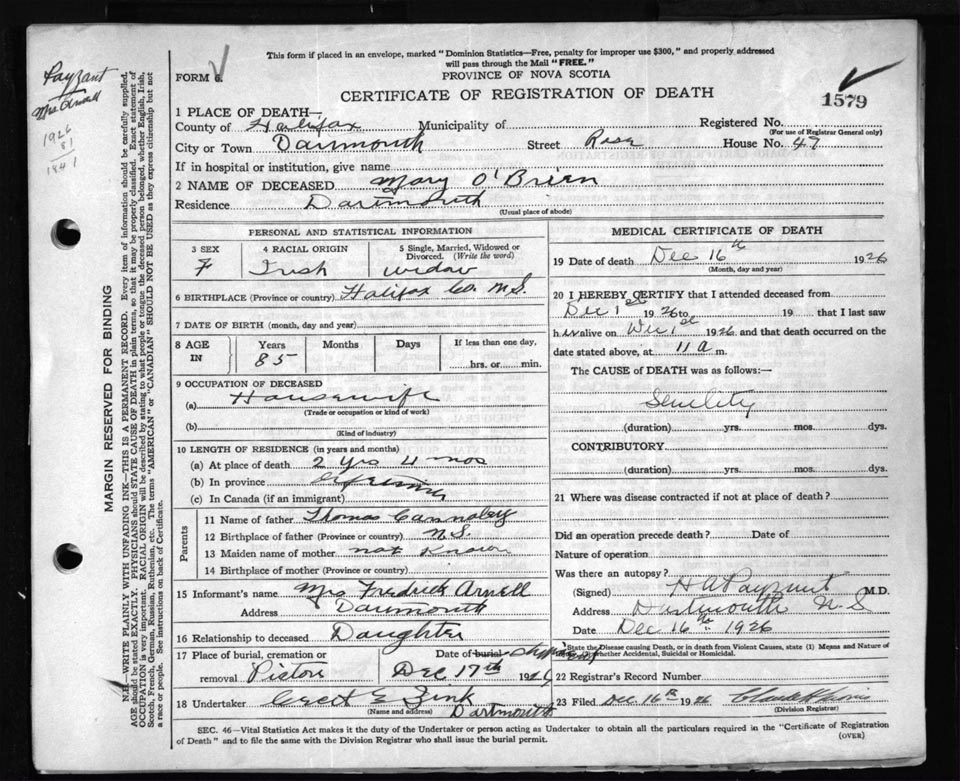 This form if placed in an envelope, marked "Dominion Statistics—Free, penalty for improper use $300," and properly addressed
will pass through the Mail "FREE."
PROVINCE OF NOVA SCOTIA
FORM 6.
CERTIFICATE OF REGISTRATION OF DEATH
1579
Payzant
Mrs Arnell
1926
81
1841
1 PLACE OF DEATH—
County of Halifax Municipality of Registered No.
(For use of Registrar General only)
City or Town Dartmouth Street Rose House No. 47
If in hospital or institution, give name
2 NAME OF DECEASED Mary O'Brien
Residence Dartmouth
(Usual place of abode)
PERSONAL AND STATISTICAL INFORMATION
3 SEX 4 RACIAL ORIGIN 5 Single, Married, Widowed or Divorced. (Write the word)
F Irish widow
6 BIRTHPLACE (Province or country) Halifax Co. N.S.
7 DATE OF BIRTH (month, day and year)
8 AGE IN Years Months Days If less than one day,
85 hrs. or min.
9 OCCUPATION OF DECEASED
(a) Housewife
(Trade or occupation or kind of work)
(b)
(Kind of industry)
10 LENGTH OF RESIDENCE (in years and months)
(a) At place of death 2 yrs 4 mos
(b) In province
(c) In Canada (if an immigrant)
Parents
11 Name of father Thomas
12 Birthplace of father (Province or country) N.S.
13 Maiden name of mother not known
14 Birthplace of mother (Province or country)
15 Informant's name Mrs Fredrick Arnell
Address Dartmouth
16 Relationship to deceased Daughter
17 Place of burial, cremation or removal Pictou Date of burial Dec 17th 1926
18 Undertaker E Zink
(Name and address) Dartmouth
MEDICAL CERTIFICATE OF DEATH
19 Date of death Dec 16th 1926
(Month, day and year)
20 I HEREBY CERTIFY that I attended deceased from
Dec 1st 1926 to 19 that I last saw
her alive on Dec 1st 1926 and that death occurred on the
date stated above, at 11 a m.
The CAUSE of DEATH was as follows:—
Senility
(duration) yrs. mos. dys.
CONTRIBUTORY
(duration) yrs. mos. dys.
21 Where was disease contracted if not at place of death?
Did an operation precede death? Date of
Nature of operation
Was there an autopsy?
(Signed) H A Payzant M.D.
Address Dartmouth N S
Date Dec 16th 1926
State the Disease causing Death, or in death from Violent Causes, state (1) Means and Nature of
whether Accidental, Suicidal or Homicidal.
22 Registrar's Record Number
23 Filed Dec 16th 1926
(Division Registrar)
SEC. 46—Vital Statistics Act makes it the duty of the Undertaker or person acting as Undertaker to obtain all the particulars required in the "Certificate of Registration
of Death" and to file the same with the Division Registrar who shall issue the burial permit.
(OVER)
MARGIN RESERVED FOR BINDING
N.B.—WRITE PLAINLY WITH UNFADING INK—THIS IS A PERMANENT RECORD. Every item of information should be carefully supplied.
AGE should be stated EXACTLY. PHYSICIANS should STATE CAUSE OF DEATH in plain terms, so that it may be properly classified. Exact statement of
OCCUPATION is very important. RACIAL ORIGIN will be described by stating to what people or tongue the deceased person belonged, whether English, Irish,
Scotch, French, German, Russian, Ruthenian, etc. The terms "AMERICAN" or "CANADIAN" SHOULD NOT BE USED as they express citizenship but not
a race or people. See instructions on back of Certificate.